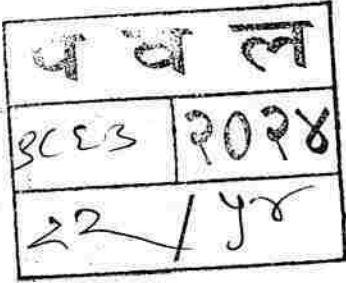 प व ल
३८६३ २०२४
२२ / ५४